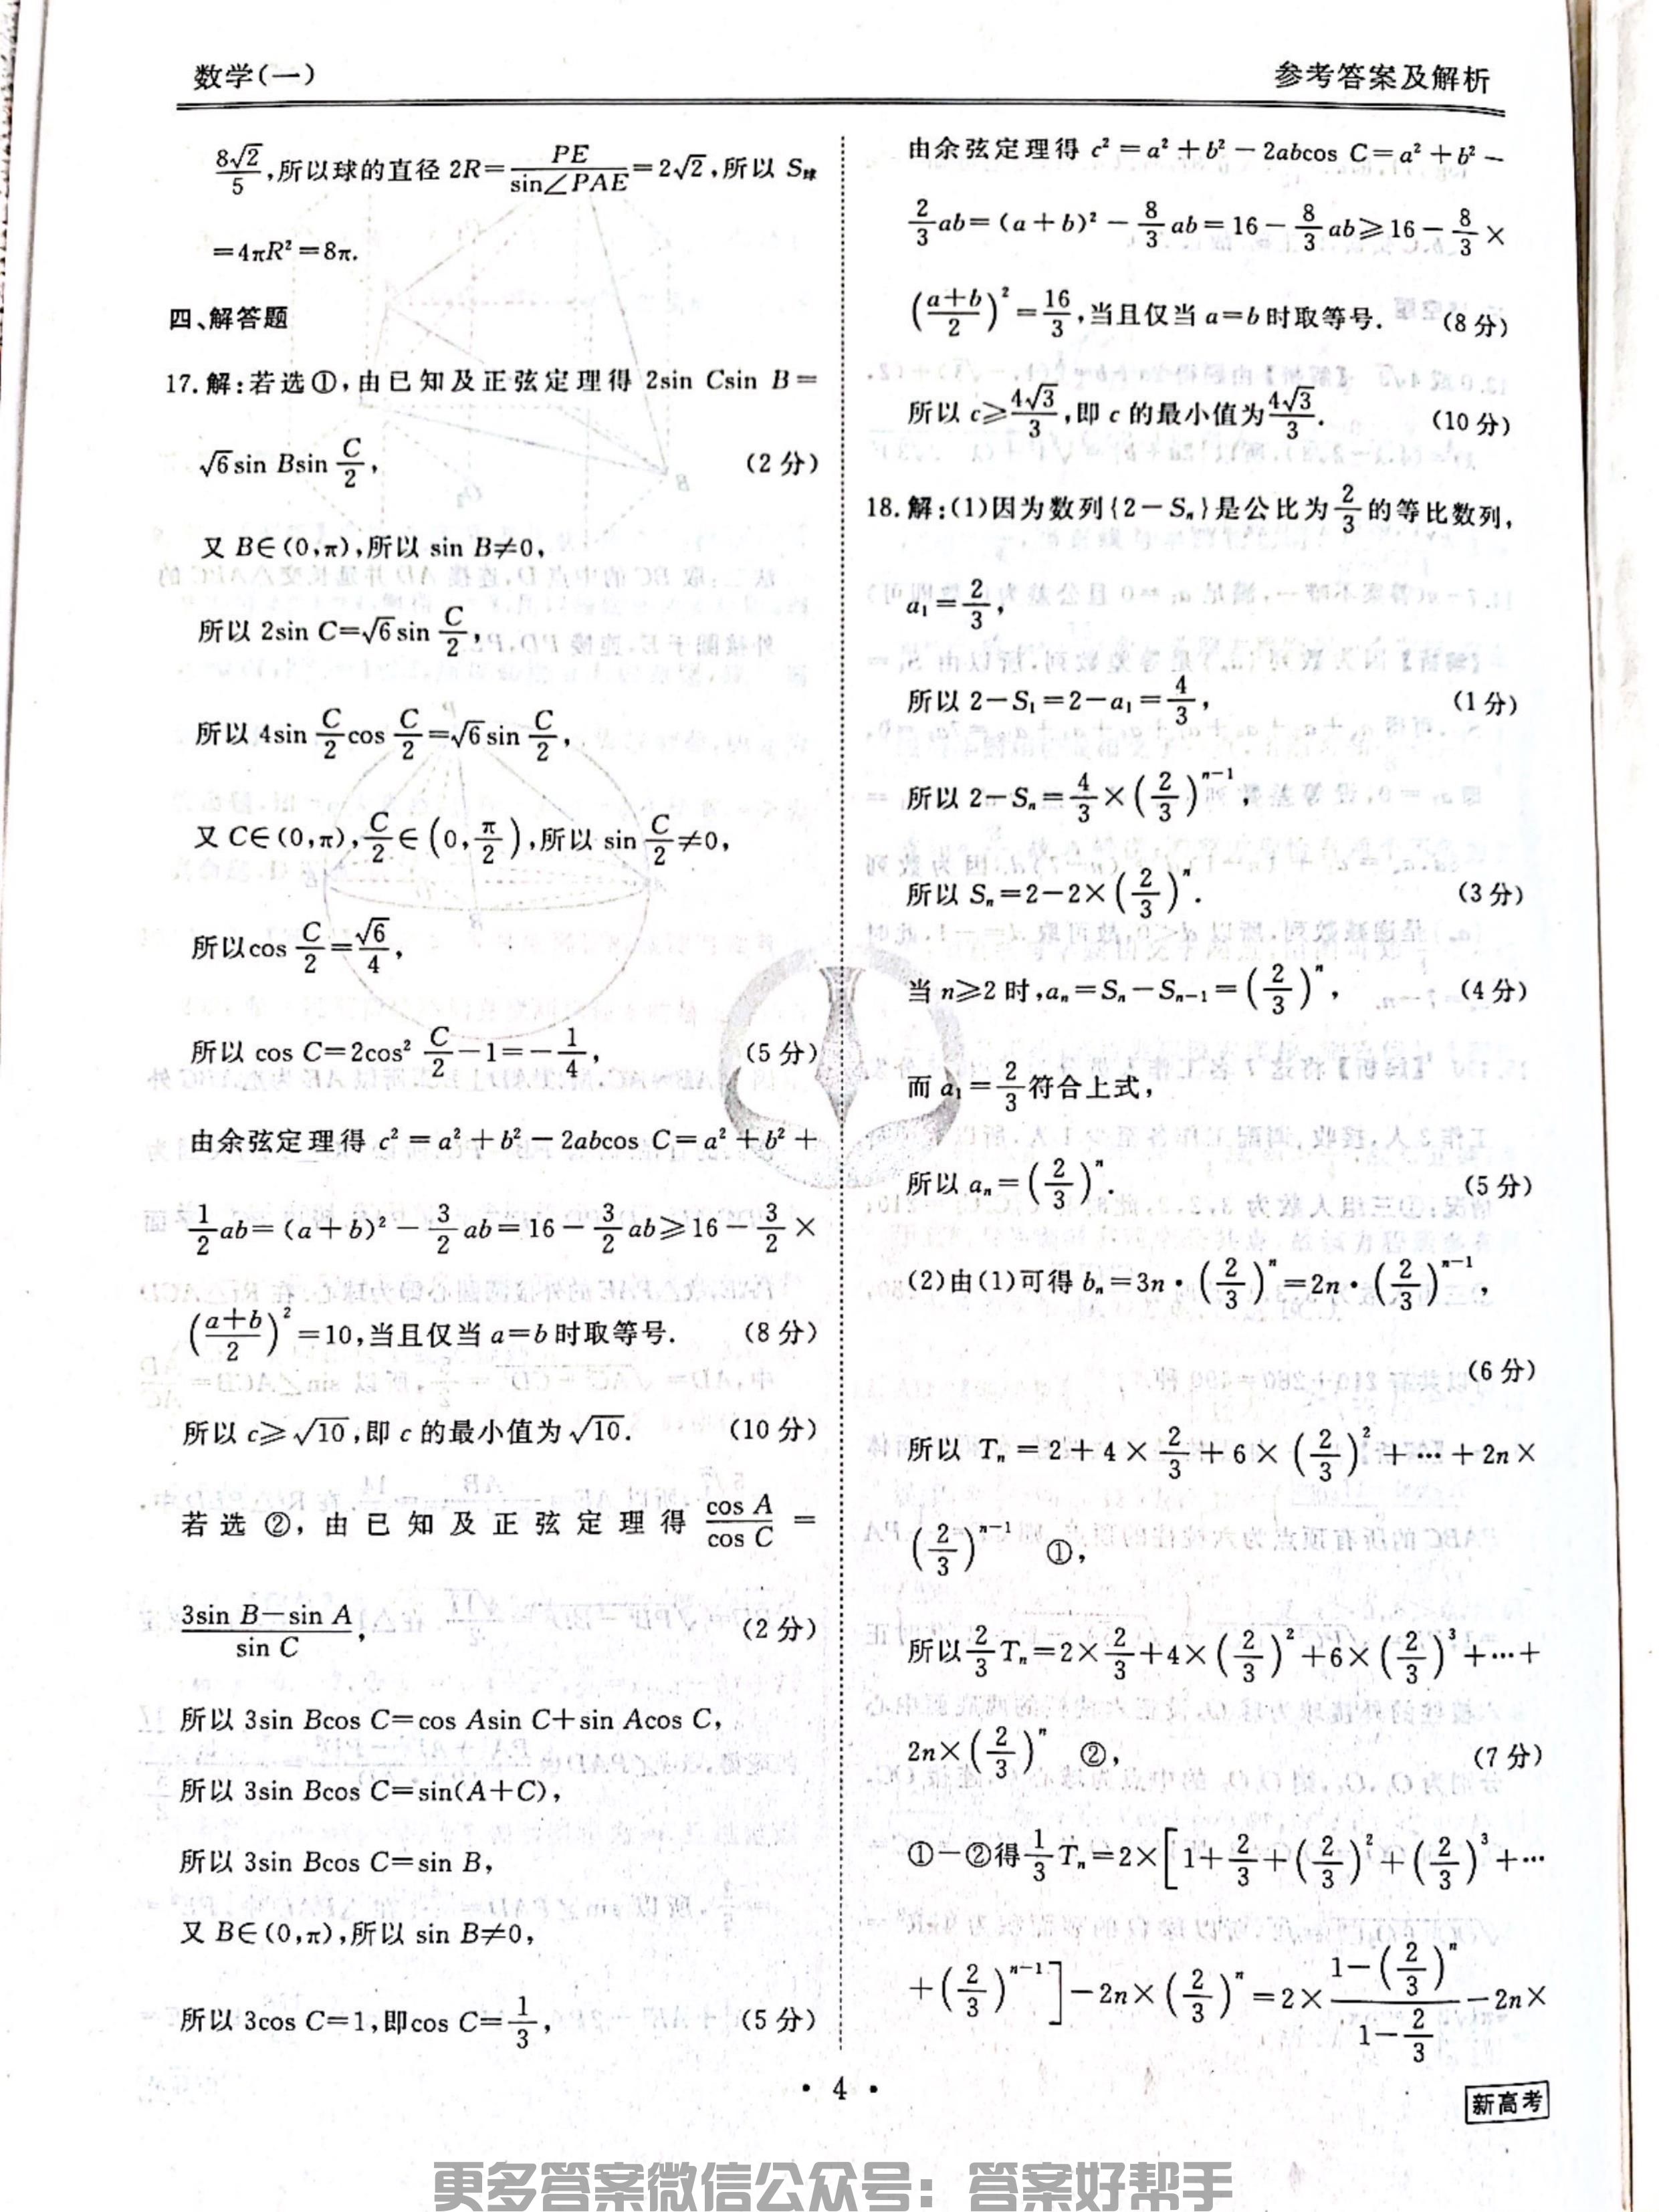 数学(一)
参考答案及解析
8√2/5,所以球的直径 2R=PE/sin∠PAE=2√2,所以 S球
=4πR²=8π.
四、解答题
17.解:若选①,由已知及正弦定理得 2sin Csin B=
√6sin Bsin C/2, (2分)
又 B∈(0,π),所以 sin B≠0,
所以 2sin C=√6sin C/2,
所以 4sin C/2cos C/2=√6sin C/2,
又 C∈(0,π),C/2∈(0,π/2),所以 sin C/2≠0,
所以cos C/2=√6/4,
所以 cos C=2cos² C/2-1=-1/4, (5分)
由余弦定理得 c²=a²+b²-2abcos C=a²+b²+
1/2ab=(a+b)²-3/2ab=16-3/2ab≥16-3/2×
((a+b)/2)²=10,当且仅当 a=b 时取等号. (8分)
所以 c≥√10,即 c 的最小值为√10. (10分)
若选②,由已知及正弦定理得 cos A/cos C=
(3sin B-sin A)/sin C, (2分)
所以 3sin Bcos C=cos Asin C+sin Acos C,
所以 3sin Bcos C=sin(A+C),
所以 3sin Bcos C=sin B,
又 B∈(0,π),所以 sin B≠0,
所以 3cos C=1,即cos C=1/3, (5分)
由余弦定理得 c²=a²+b²-2abcos C=a²+b²-
2/3ab=(a+b)²-8/3ab=16-8/3ab≥16-8/3×
((a+b)/2)²=16/3,当且仅当 a=b 时取等号. (8分)
所以 c≥4√3/3,即 c 的最小值为4√3/3. (10分)
18.解:(1)因为数列{2-Sₙ}是公比为2/3的等比数列,
a₁=2/3,
所以 2-S₁=2-a₁=4/3, (1分)
所以 2-Sₙ=4/3×(2/3)ⁿ⁻¹,
所以 Sₙ=2-2×(2/3)ⁿ. (3分)
当 n≥2 时,aₙ=Sₙ-Sₙ₋₁=(2/3)ⁿ, (4分)
而 a₁=2/3符合上式,
所以 aₙ=(2/3)ⁿ. (5分)
(2)由(1)可得 bₙ=3n·(2/3)ⁿ=2n·(2/3)ⁿ⁻¹,
(6分)
所以 Tₙ=2+4×2/3+6×(2/3)²+…+2n×
(2/3)ⁿ⁻¹ ①,
所以2/3Tₙ=2×2/3+4×(2/3)²+6×(2/3)³+…+
2n×(2/3)ⁿ ②, (7分)
①-②得1/3Tₙ=2×[1+2/3+(2/3)²+(2/3)³+…
+(2/3)ⁿ⁻¹]-2n×(2/3)ⁿ=2×(1-(2/3)ⁿ)/(1-2/3)-2n×
· 4 ·
新高考
更多答案微信公众号：答案好帮手